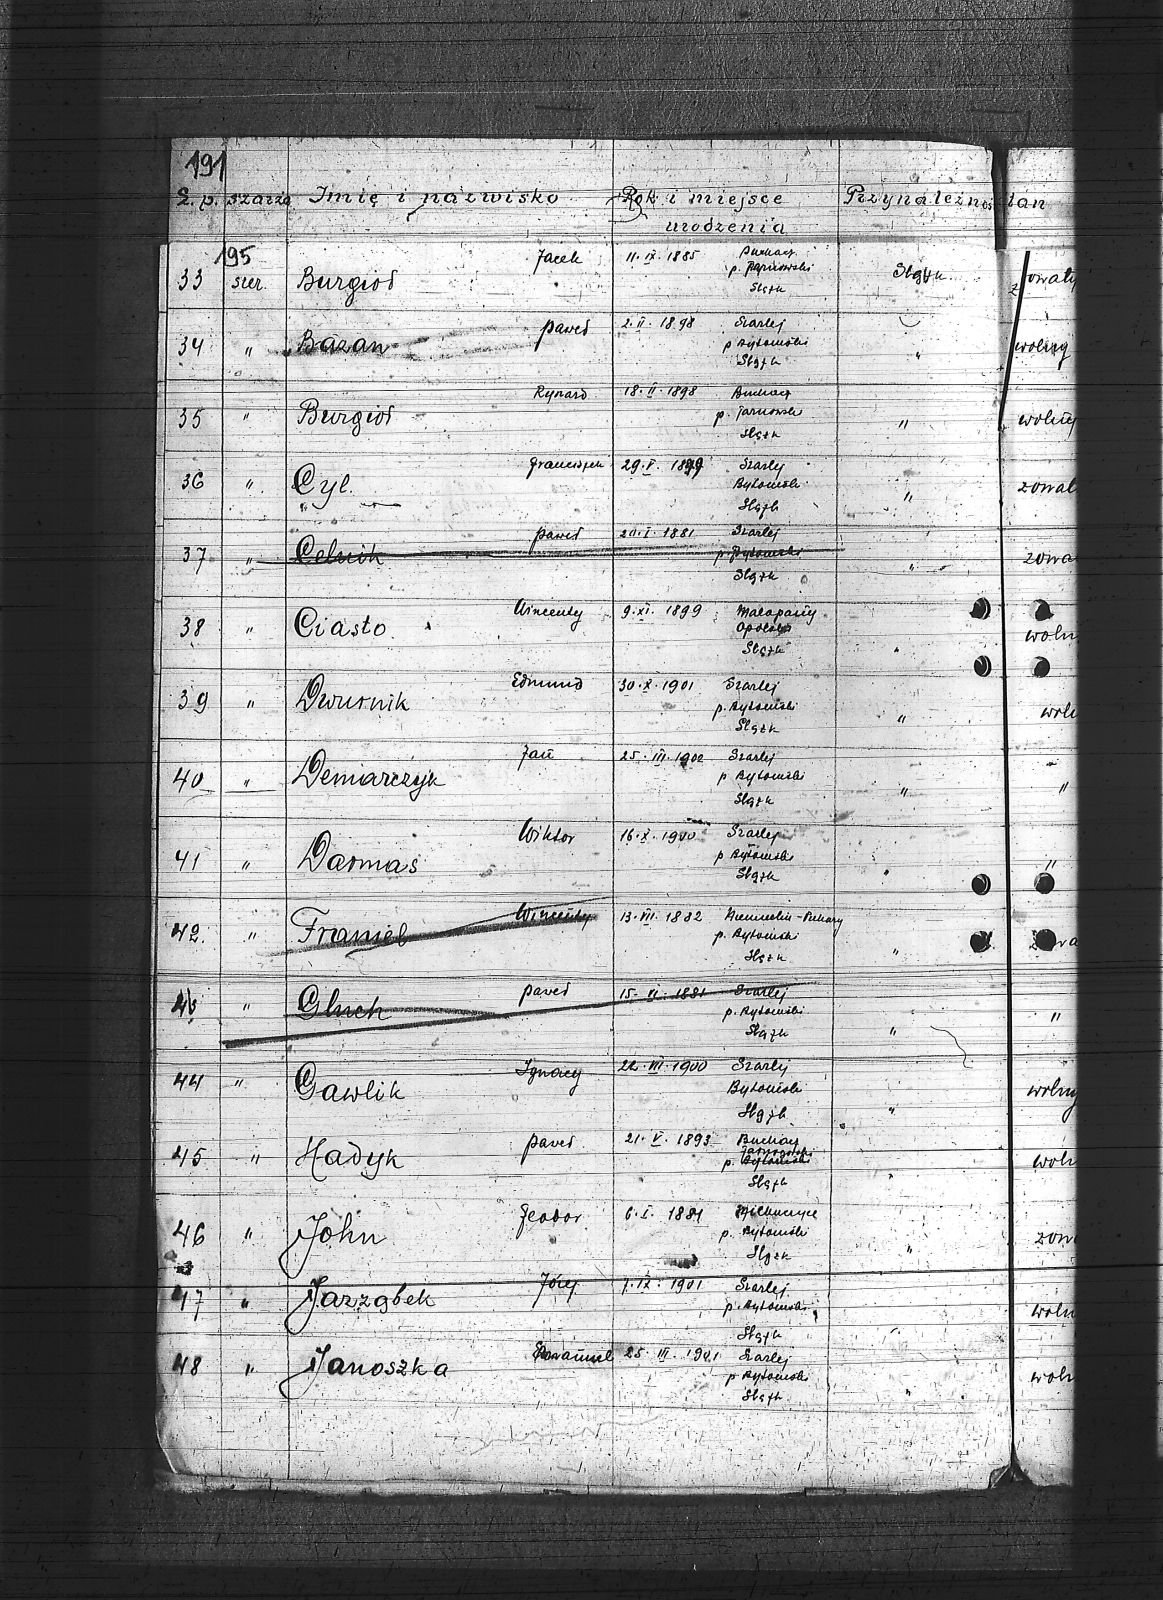 191
L. p. szarża Imię i nazwisko Rok i miejsce urodzenia Przynależnoś tan
195
33 szer. Burgioł Jacek 11.IX.1885
p. Tarnowski
Śląsk Śląsk
34 " Bazan Paweł 2.II.1898 Szarlej
p. Bytomski
Śląsk " wolny
35 " Burgioł Rynard 18.II.1898
p. Tarnowski
Śląsk " wolny
36 " Cyl. Franciszek 29.V. Szarlej
Bytomski
Śląsk " zowal
37 " Celnik Paweł 20.I.1881 Szarlej
p. Bytomski
Śląsk " zowa
38 " Ciasto Wincenty 9.XI.1899 Małapany
Opolski
Śląsk " woln
39 " Dwurnik Edmund 30.X.1901 Szarlej
p. Bytomski
Śląsk " woln
40 " Demarczyk Jan 25.III.1902 Szarlej
p Bytomski
Śląsk " "
41 " Darmas Wiktor 16.X.1900 Szarlej
p Bytomski
Śląsk " "
42. " Franiel Wincenty 13.VII.1882 Niemieckie-Piekary
p. Bytomski
Śląsk "
43 " Gluch Paweł 15.VI.1881 Szarlej
p. Bytomski
Śląsk " "
44 " Gawlik Ignacy 22.VII.1900 Szarlej
Bytomski
Śląsk " wolny
45 " Hadyk Paweł 21.V.1893
Tarnowski
p. Bytomski
Śląsk " woln
46 " John Teodor 6.I.1881
p. Bytomski
Śląsk " zow
47 " Jarząbek Józef 1.IX.1901 Szarlej
p. Bytomski
Śląsk " woln
48 " Janoszka 25.III.1901 Szarlej
p Bytomski
Śląsk " woln